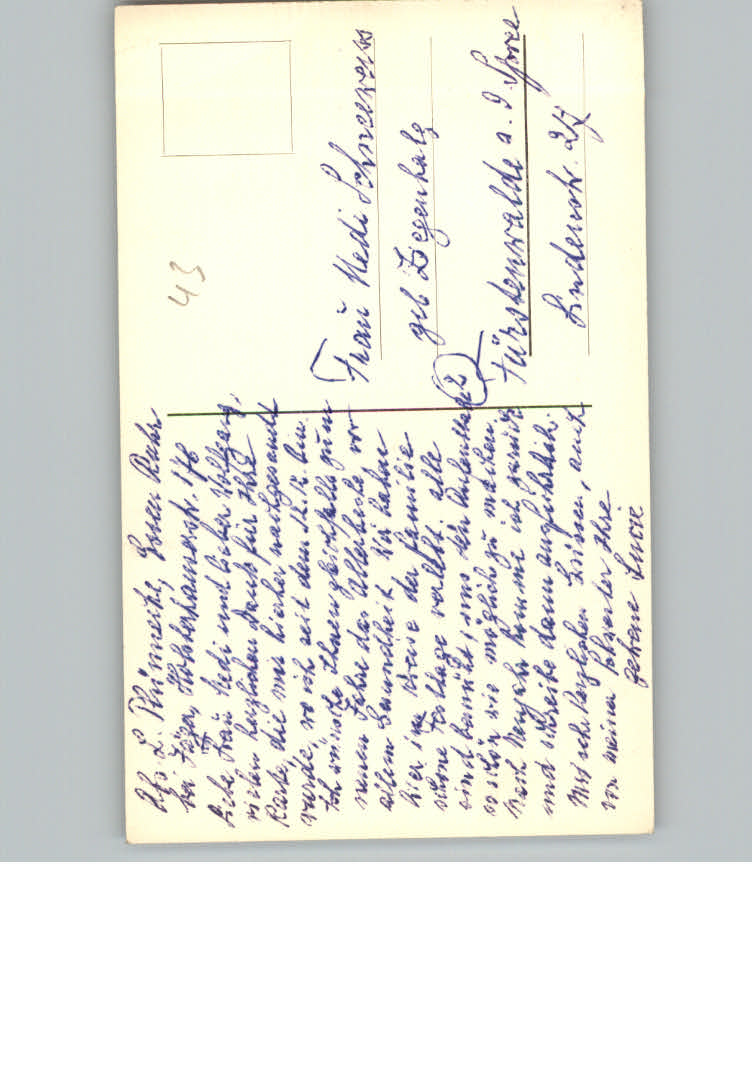 Abs. L. Plümecke, Essen Ruhr
bei Jäger, Holsterhauserstr. 176
Liebe Frau Hedi und lieber Wolfgang,
vielen herzlichen Dank für Ihre
Karte, die mir hierher nachgesandt
wurde, wo ich seit dem 12.12. bin.
Ich wünsche Ihnen gleichfalls zum
neuen Jahre das Allerbeste vor
allem Gesundheit. Wir haben
hier im Kreise der Familie
schöne Festtage verlebt. Alle
sind bemüht, uns den Aufenthalt
so schön wie möglich zu machen.
Nach Neujahr komme ich zurück
und schreibe dann ausführlich.
Mit sehr herzlichen Grüssen, auch
von meiner Schwester Ihre
getreue Lucie
43
Frau Hedi Schneeweiss
geb Ziegenhals
2 Fürstenwalde a. d. Spree
Lindenstr. 27